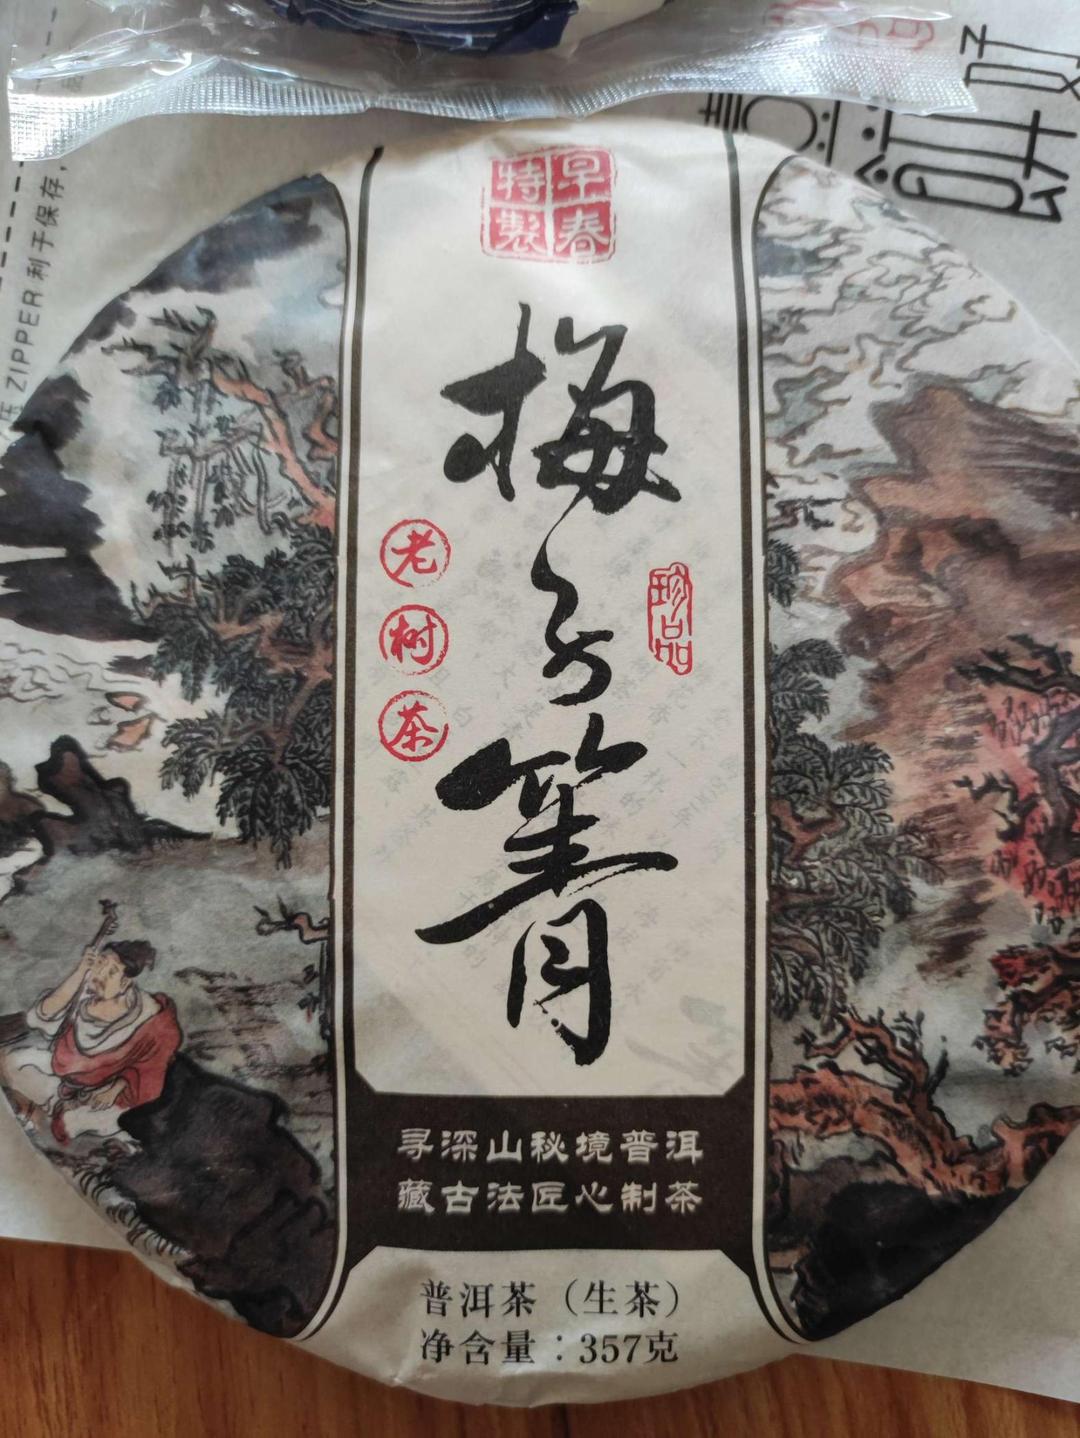 早春
特製
梅子箐
老树茶
珍品
寻深山秘境普洱
藏古法匠心制茶
普洱茶（生茶）
净含量：357克
ZIPPER 利于保存，